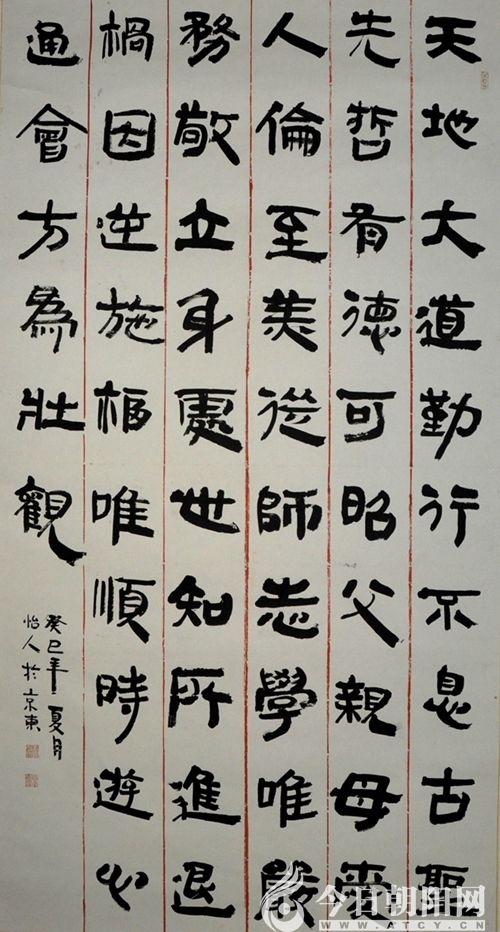 天地大道勤行不息古聖
先哲有德可昭父親母愛
人倫至美從師志學唯嚴
務敬立身處世知所進退
禍因逆施唯順時遊心
通會方為壯觀
癸巳年夏月
怡人於京東
今日朝阳网
WWW.ATCY.CN